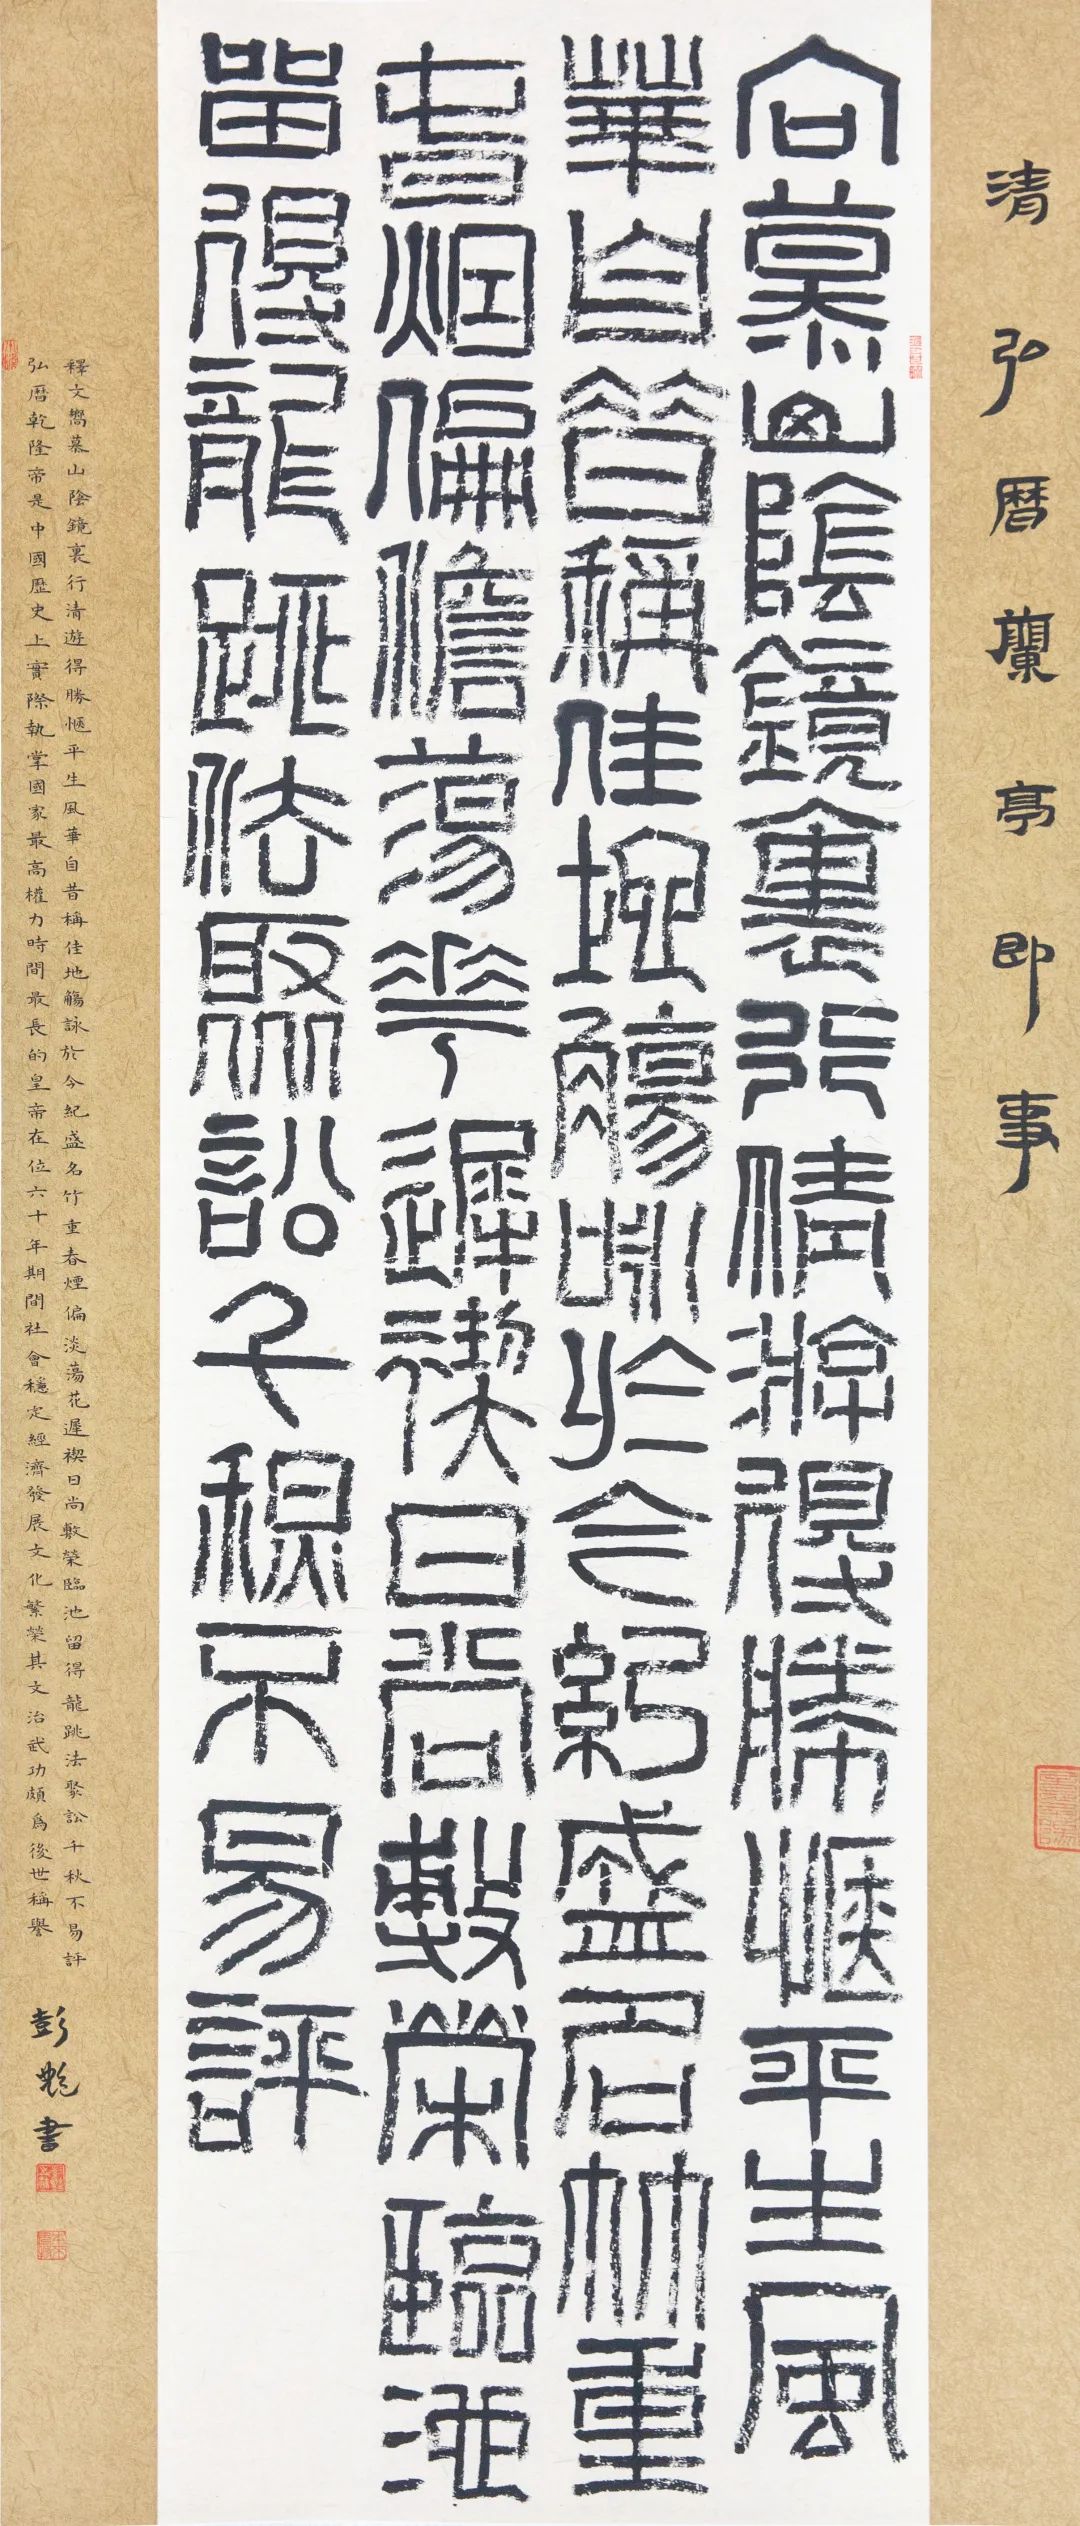 清弘曆蘭亭即事
向慕山陰鏡裏行清游得勝愜平生風
華自昔稱佳地觴詠於今紀盛名竹重
春烟偏澹蕩花遲禊日尚敷榮臨池
留得龍跳法聚訟千秋不易評
釋文嚮慕山陰鏡裏行清遊得勝愜平生風華自昔稱佳地觴詠於今紀盛名竹重春煙偏淡蕩花遲禊日尚敷榮臨池留得龍跳法聚訟千秋不易評
弘曆乾隆帝是中國歷史上實際執掌國家最高權力時間最長的皇帝在位六十年期間社會穩定經濟發展文化繁榮其文治武功頗爲後世稱譽
彭艷書